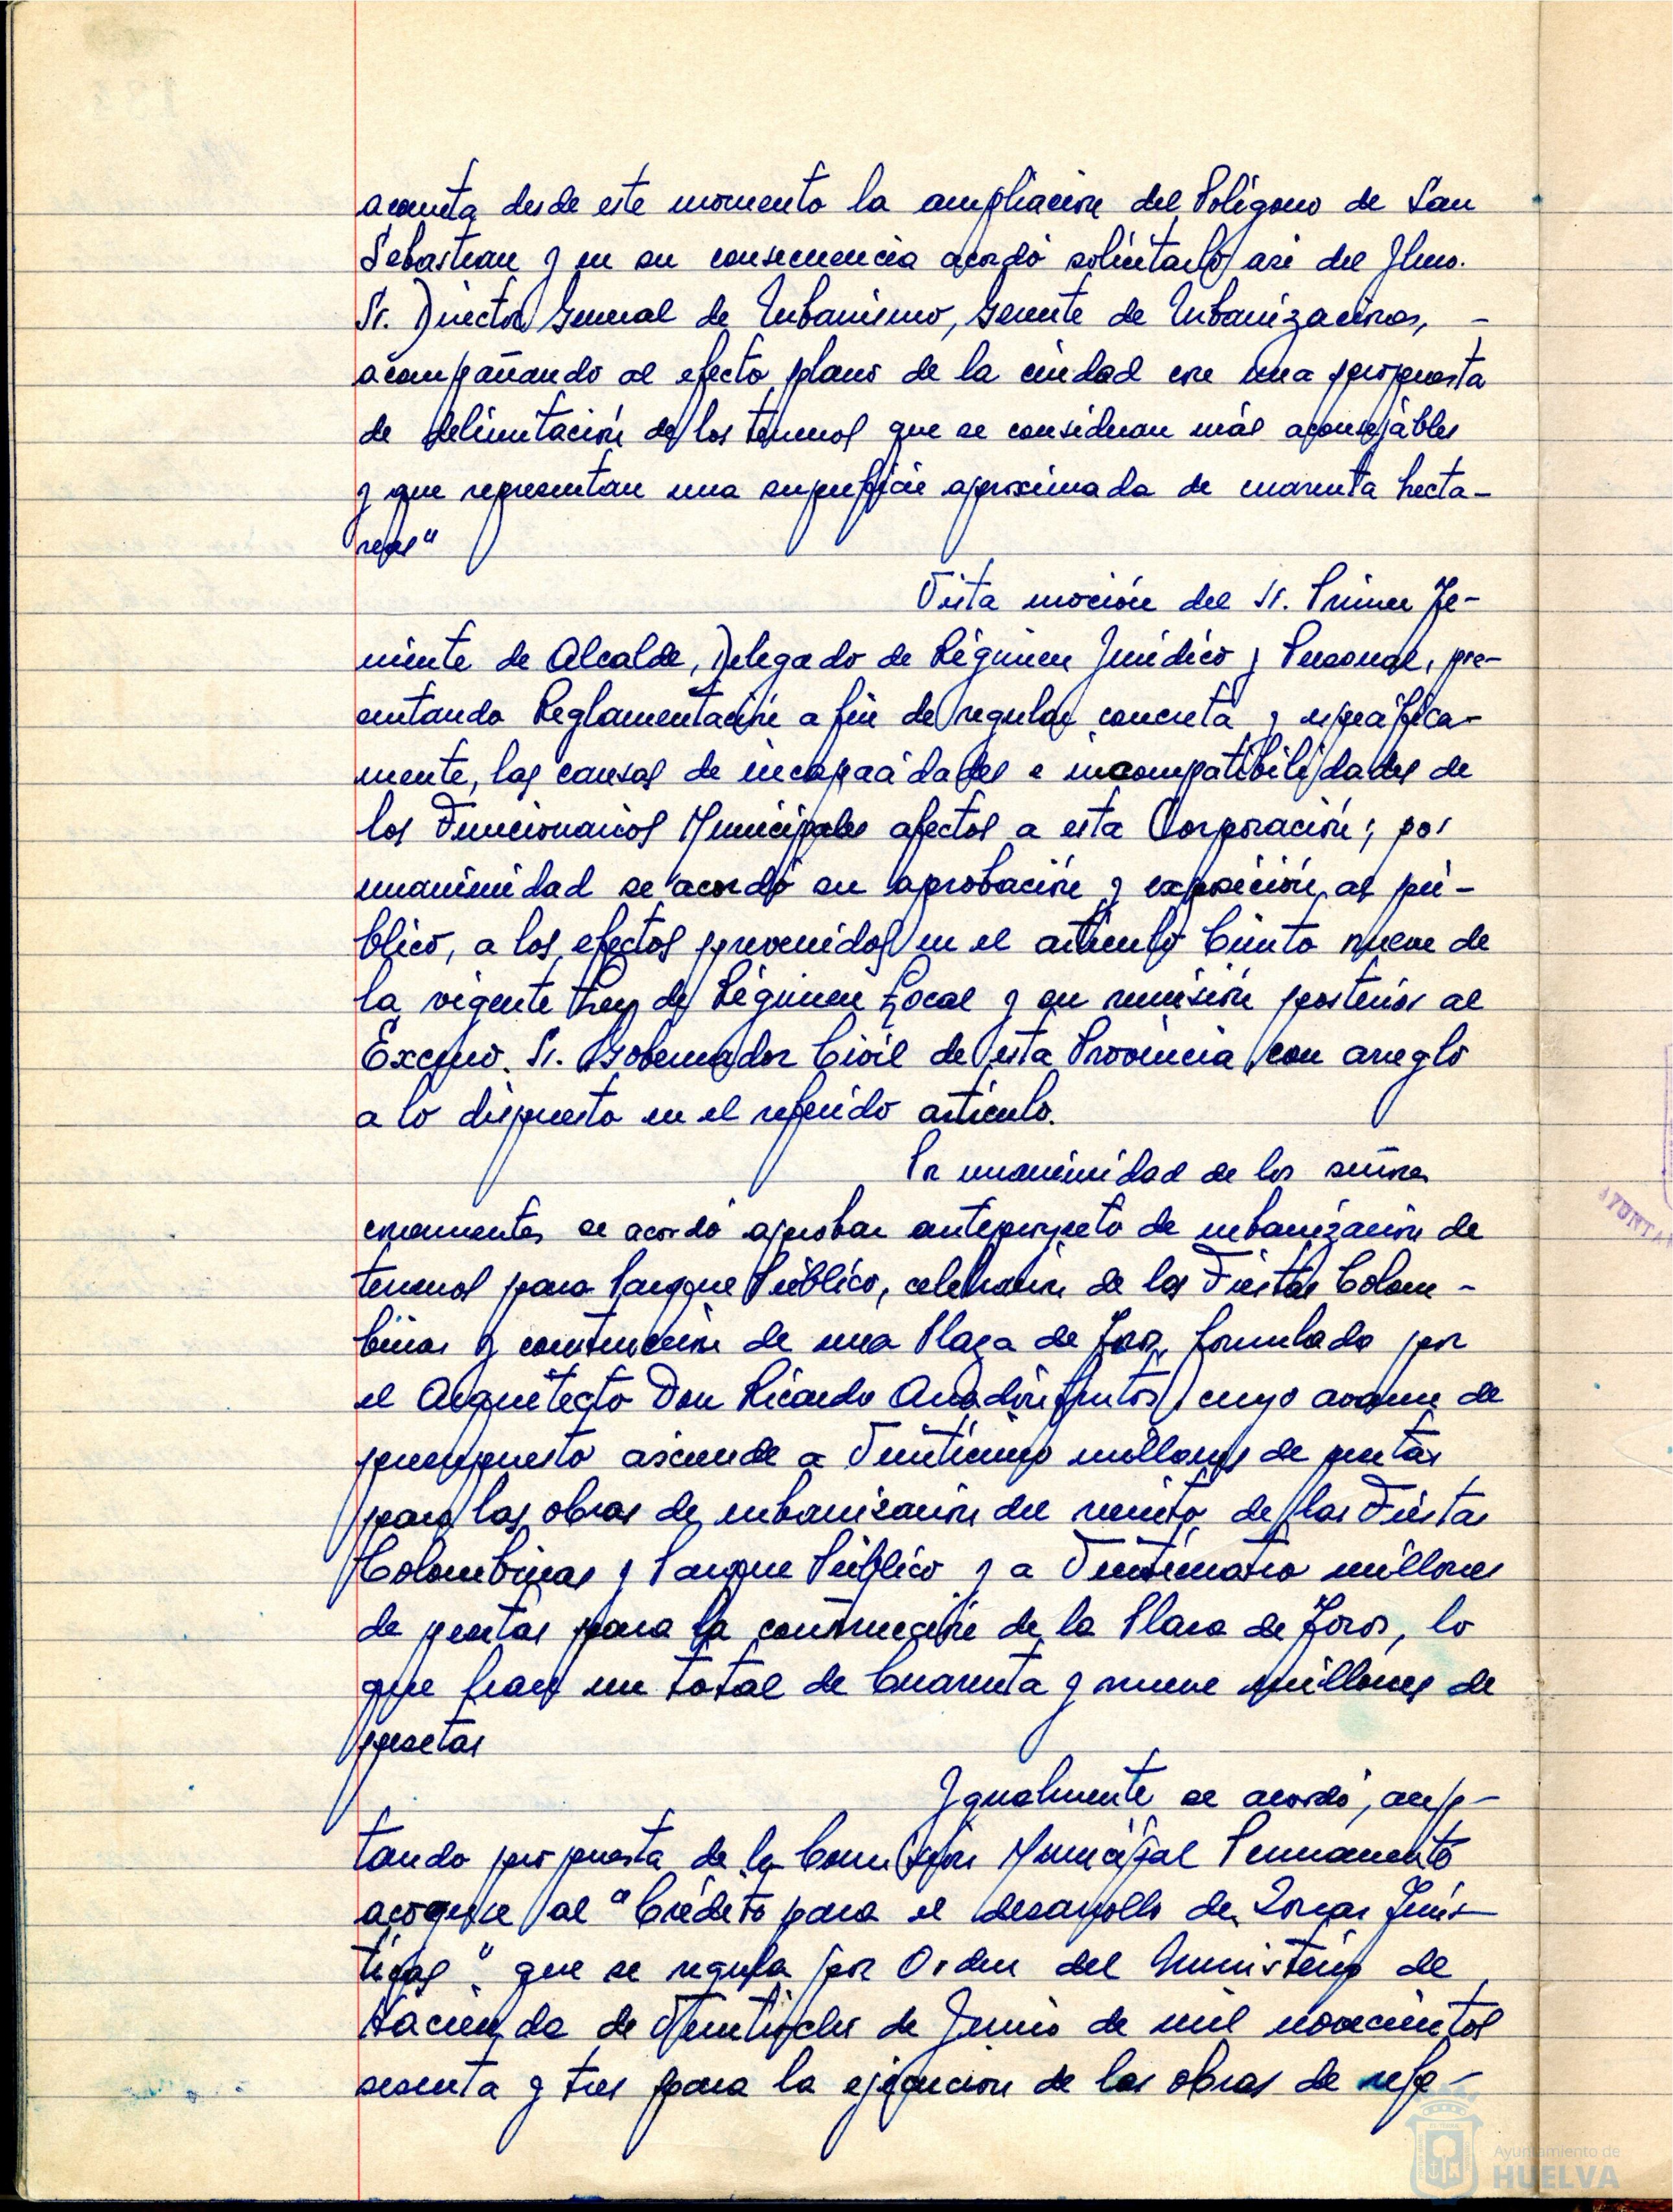 acometa desde este momento la ampliación del Polígono de San
Sebastian y en su consecuencia acordó solicitarlo asi del Ilmo.
Sr. Director General de Urbanismo, Gerente de Urbanizaciones, -
acompañando al efecto plano de la ciudad con una propuesta
de delimitación de los terrenos que se consideran más aconsejables
y que representan una superficie aproximada de cuarenta hecta-
reas"
Vista moción del Sr. Primer Te-
niente de Alcalde, Delegado de Régimen Juridico y Personal, pre-
sentando Reglamentación a fin de regular concreta y especifica-
mente, las causas de incapacidades e incompatibilidades de
los Funcionarios Municipales afectos a esta Corporación; por
unanimidad se acordó su aprobación y exposición al pú-
blico, a los efectos prevenidos en el articulo Ciento nueve de
la vigente Ley de Régimen Local y su remisión posterior al
Excmo. Sr. Gobernador Civil de esta Provincia con arreglo
a lo dispuesto en el referido articulo.
Por unanimidad de los señores
concurrentes se acordó aprobar anteproyecto de urbanización de
terrenos para Parque Público, celebración de las Fiestas Colom-
binas y construcción de una Plaza de Toros, formulado por
el Arquitecto Don Ricardo Anadón Frutos, cuyo avance de
presupuesto asciende a Veinticinco millones de pesetas
para las obras de urbanización del recinto de las Fiestas
Colombinas y Parque Público y a Veinticuatro millones
de pesetas para la construcción de la Plaza de Toros, lo
que hace un total de Cuarenta y nueve millones de
pesetas
Igualmente se acordó, acep-
tando propuesta de la Comisión Municipal Permanente
acogerse al "Crédito para el desarrollo de Zonas Turís-
ticas", que se regula por Orden del Ministerio de
Hacienda de Veintiocho de Junio de mil novecientos
sesenta y tres para la ejecución de las obras de refe-
AYUNTA
Ayuntamiento de
HUELVA